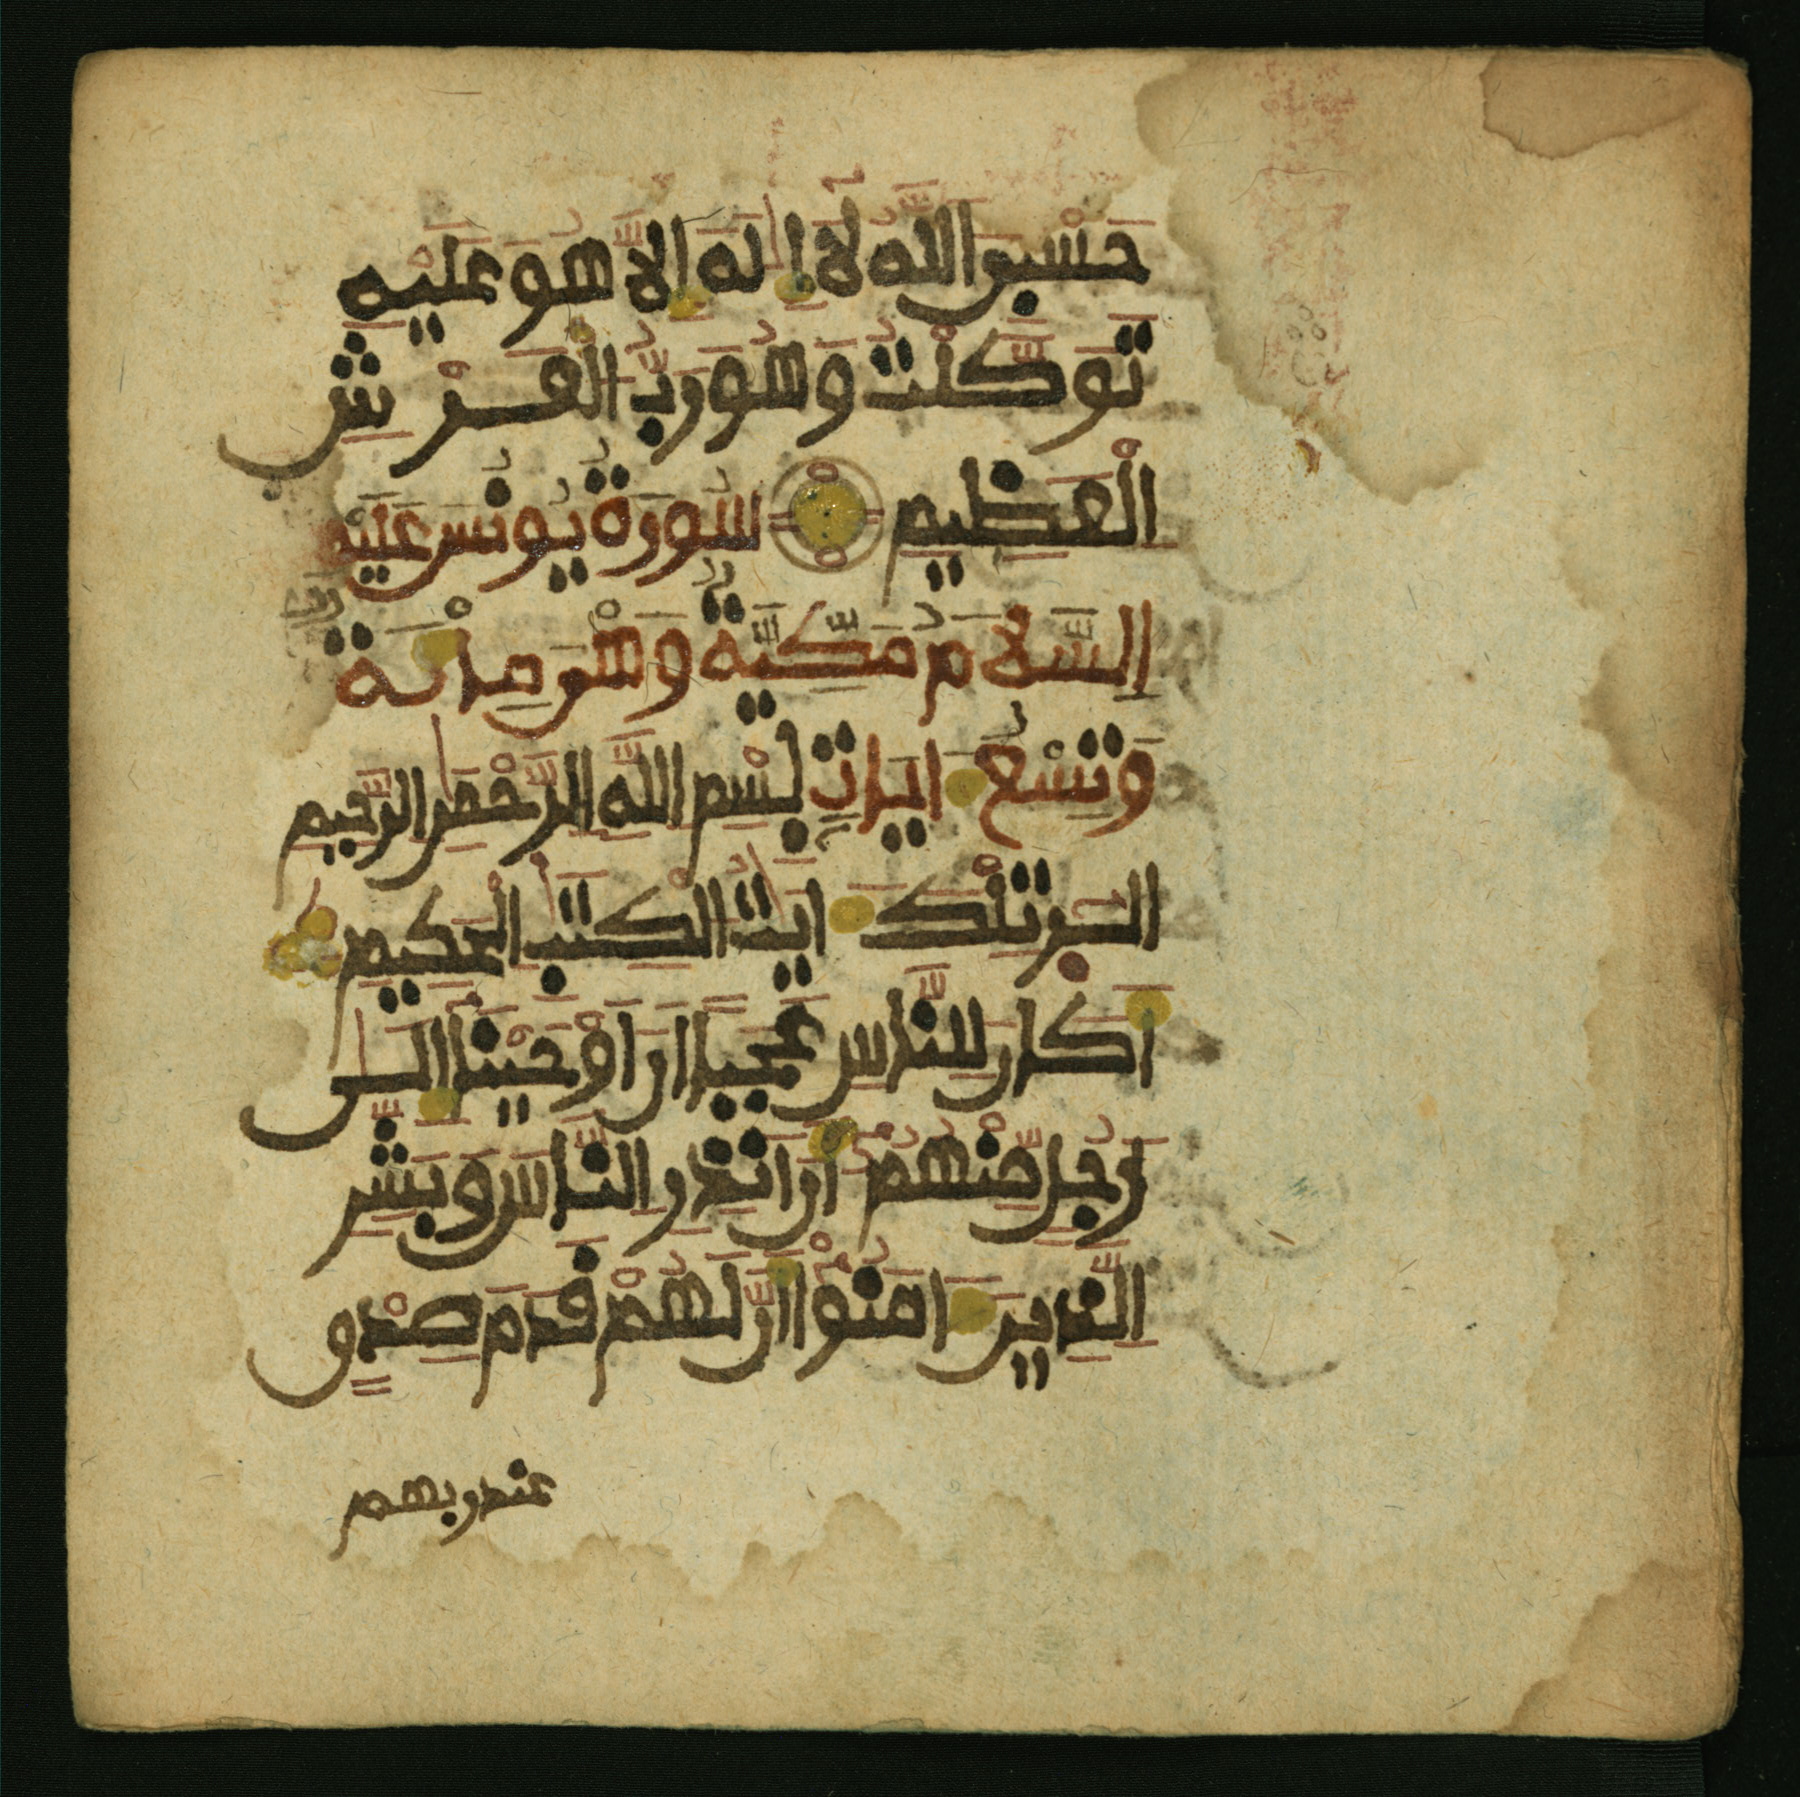 حَسْبِيَ اللَّهُ لَآ إِلَٰهَ إِلَّا هُوَ عَلَيْهِ
تَوَكَّلْتُ وَهُوَ رَبُّ الْعَرْشِ
الْعَظِيمِ سُورَةُ يُونُسَ عَلَيْهِ
السَّلَامُ مَكِّيَّةٌ وَهْيَ مِائَةٌ
وَتِسْعُ ءَايَاتٍ بِسْمِ اللَّهِ الرَّحْمَٰنِ الرَّحِيمِ
الر تِلْكَ ءَايَٰتُ الْكِتَٰبِ الْحَكِيمِ
أَكَانَ لِلنَّاسِ عَجَبًا أَنْ أَوْحَيْنَا إِلَى
رَجُلٍ مِّنْهُمْ أَنْ أَنذِرِ النَّاسَ وَبَشِّرِ
الَّذِينَ ءَامَنُوا أَنَّ لَهُمْ قَدَمَ صِدْقٍ
عند ربهم